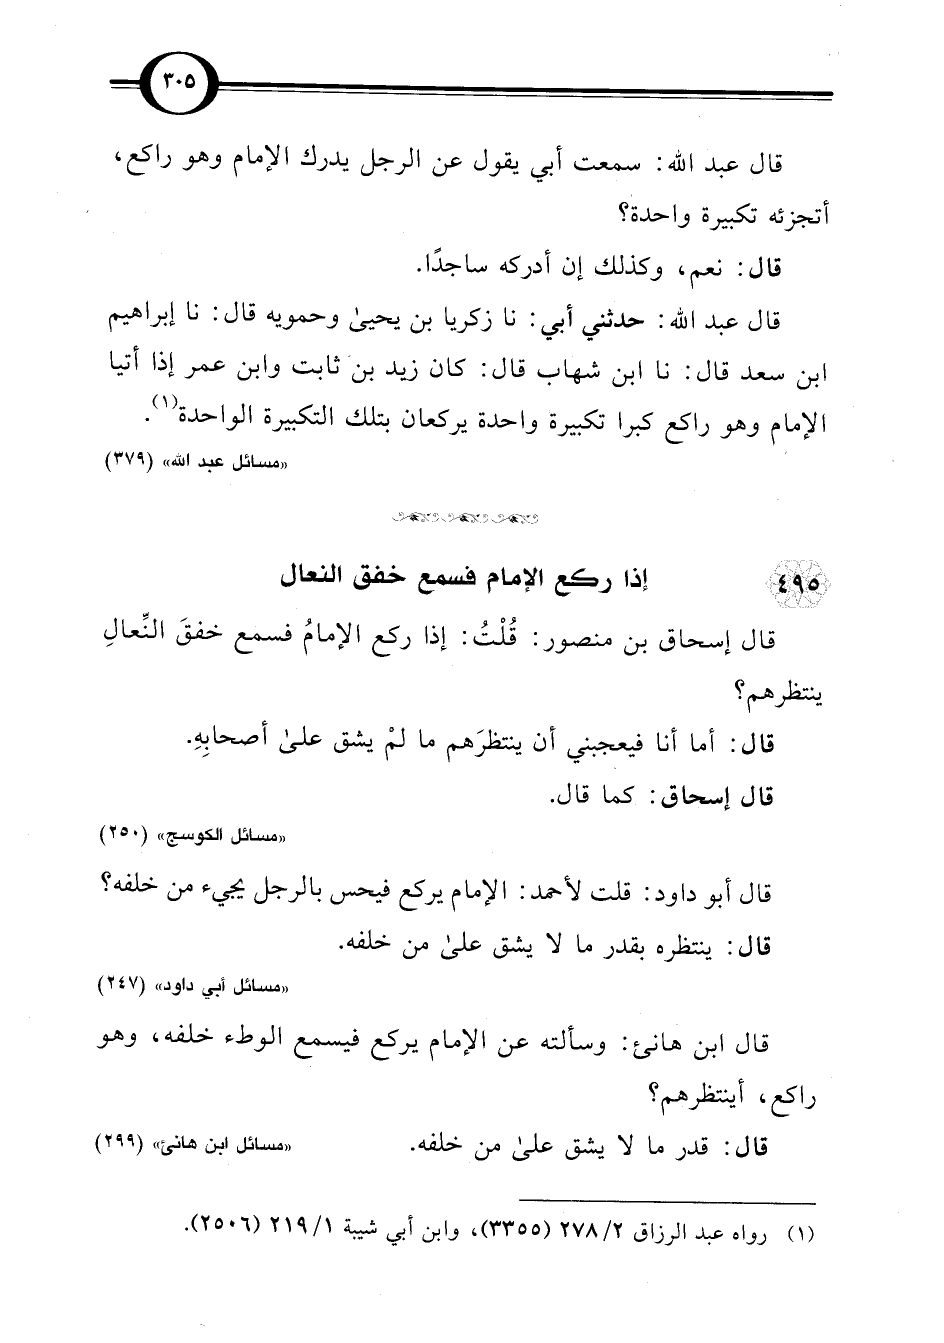 ٣٠٥
قال عبد الله: سمعت أبي يقول عن الرجل يدرك الإمام وهو راكع،
أتجزئه تكبيرة واحدة؟
قال: نعم، وكذلك إن أدركه ساجدًا.
قال عبد الله: حدثني أبي: نا زكريا بن يحيىٰ وحمويه قال: نا إبراهيم
ابن سعد قال: نا ابن شهاب قال: كان زيد بن ثابت وابن عمر إذا أتيا
الإمام وهو راكع كبرا تكبيرة واحدة يركعان بتلك التكبيرة الواحدة(١).
«مسائل عبد الله» (٣٧٩)
٤٩٥ إذا ركع الإمام فسمع خفق النعال
قال إسحاق بن منصور: قُلْتُ: إذا ركع الإمامُ فسمع خفقَ النِّعالِ
ينتظرهم؟
قال: أما أنا فيعجبني أن ينتظرَهم ما لمْ يشق علىٰ أصحابِهِ.
قال إسحاق: كما قال.
«مسائل الكوسج» (٢٥٠)
قال أبو داود: قلت لأحمد: الإمام يركع فيحس بالرجل يجيء من خلفه؟
قال: ينتظره بقدر ما لا يشق علىٰ من خلفه.
«مسائل أبي داود» (٢٤٧)
قال ابن هانئ: وسألته عن الإمام يركع فيسمع الوطء خلفه، وهو
راكع، أينتظرهم؟
قال: قدر ما لا يشق علىٰ من خلفه. «مسائل ابن هانئ» (٢٩٩)
(١) رواه عبد الرزاق ٢/ ٢٧٨ (٣٣٥٥)، وابن أبي شيبة ١/ ٢١٩ (٢٥٠٦).